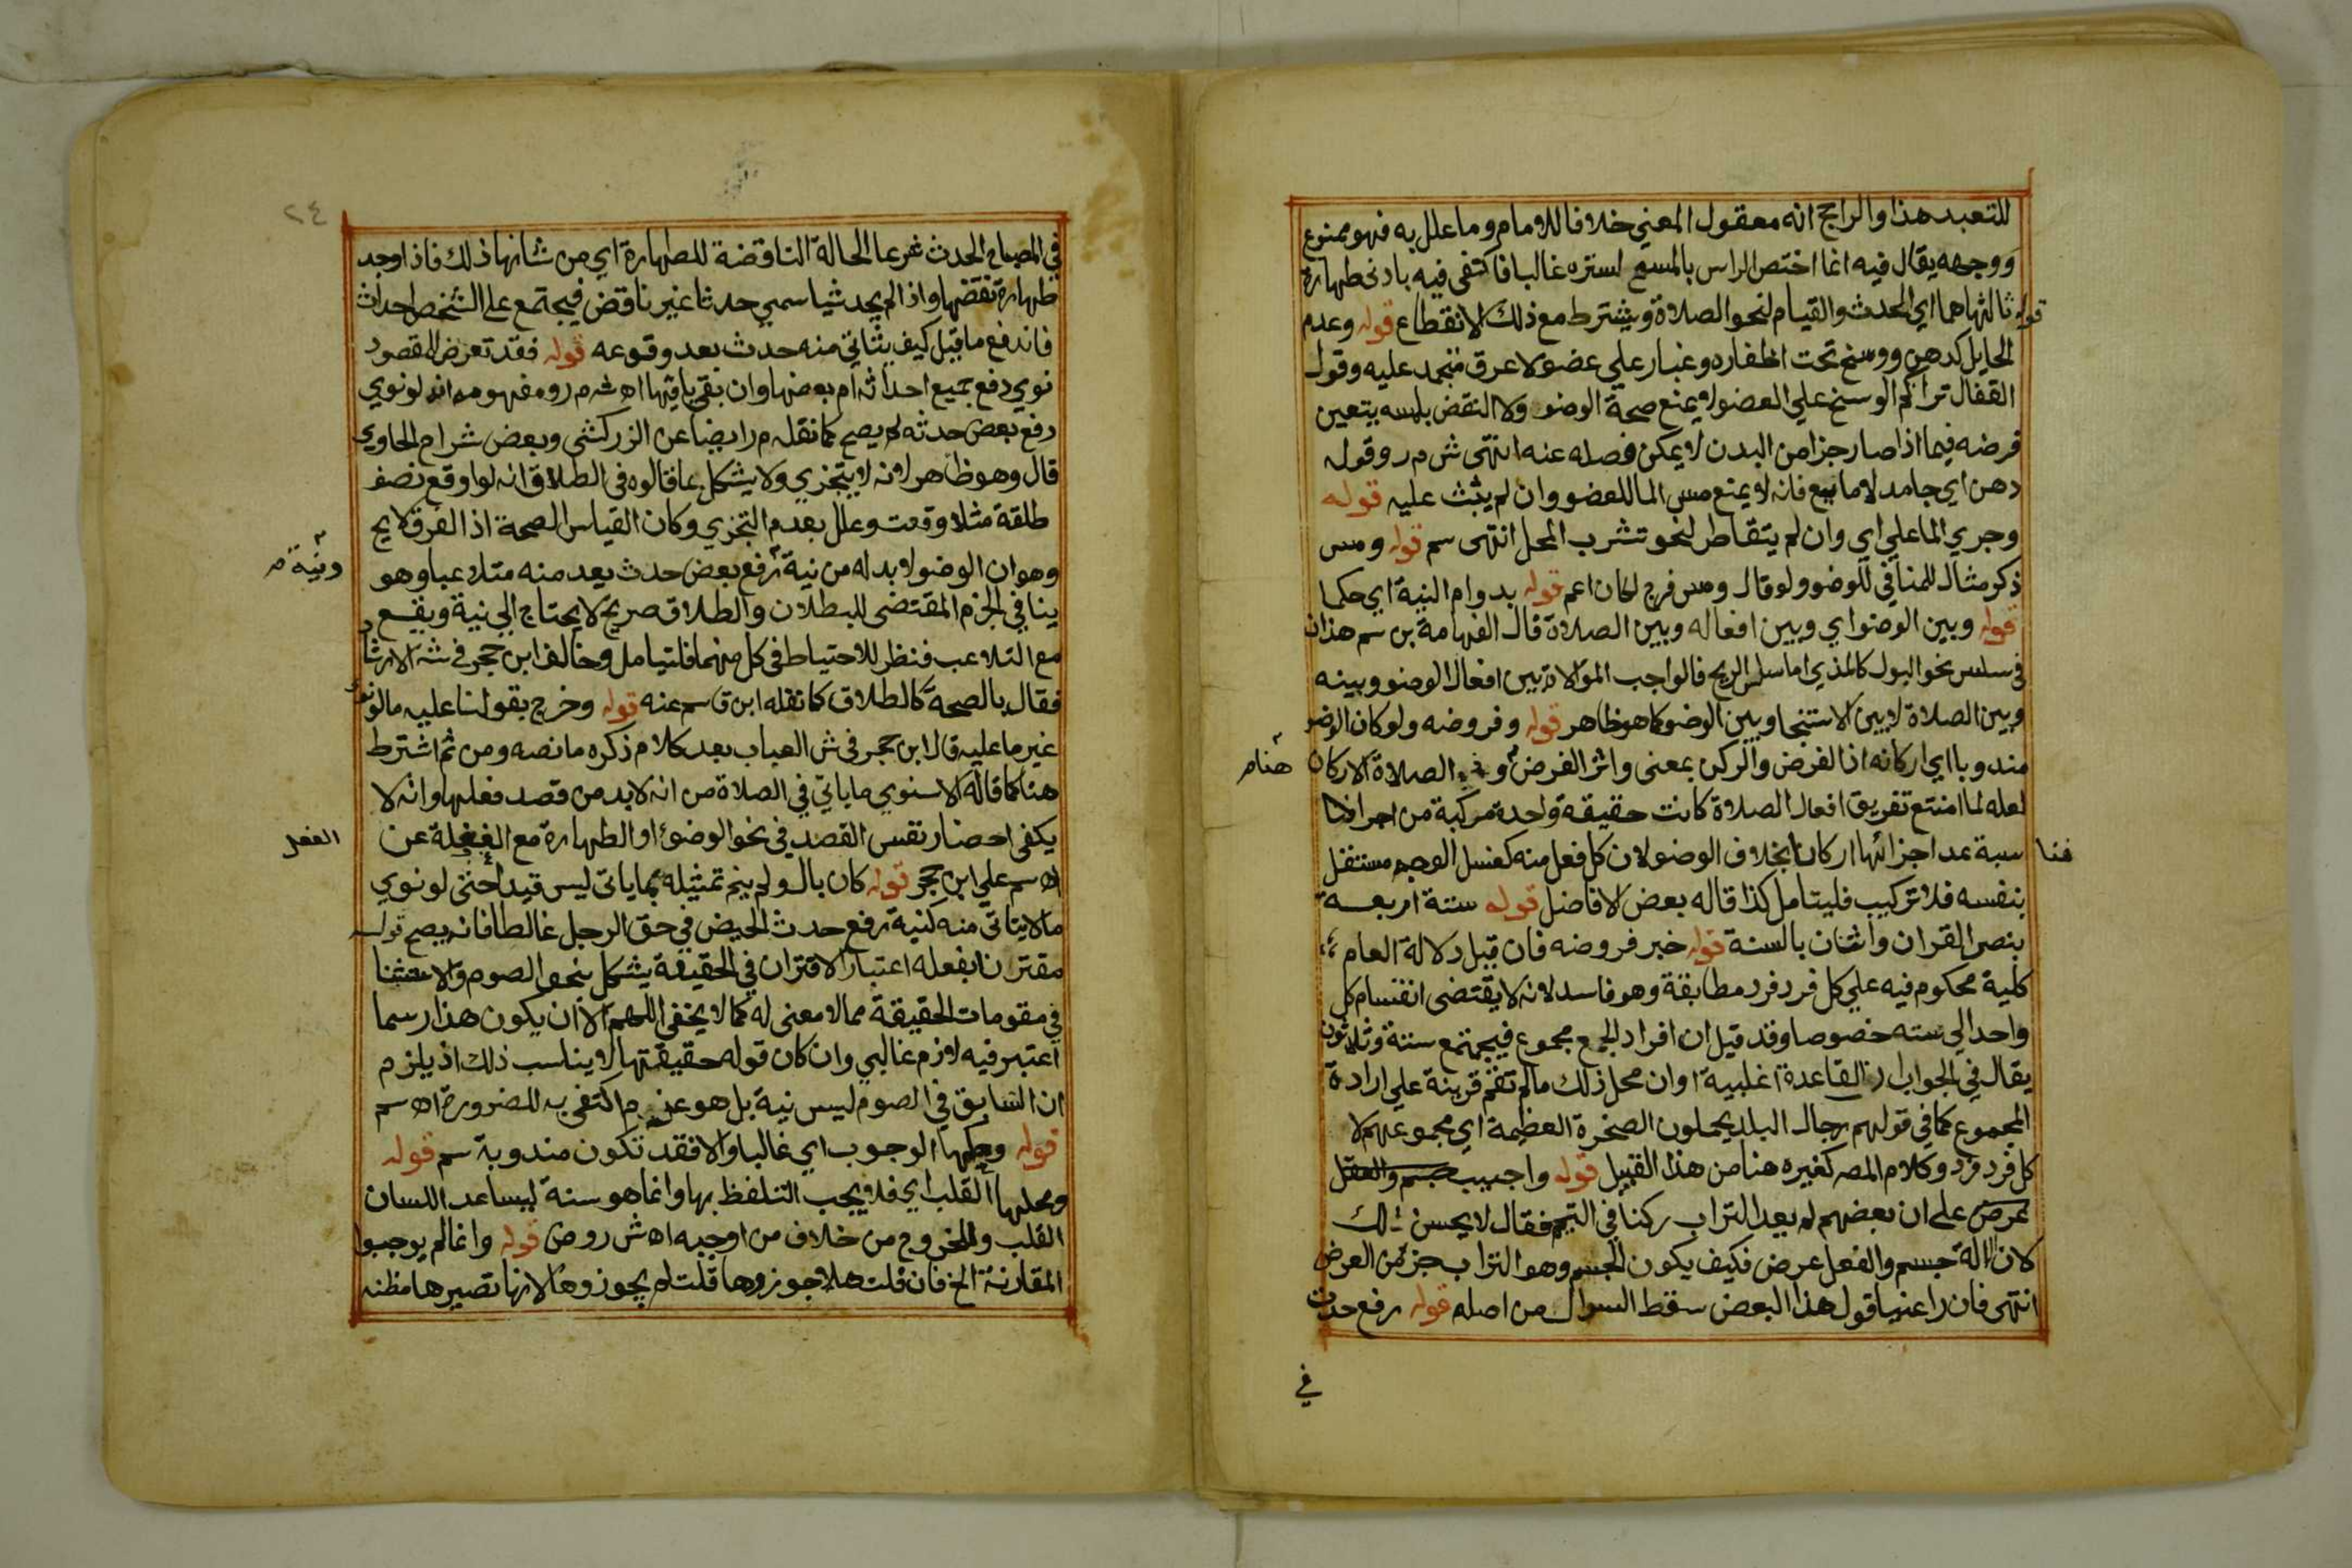 للتعبد هذا والراجح انه معقول المعني خلافا للامام وما علل به فهو ممنوع
ووجهه يقال فيه انما اختص الراس بالمسح لستره غالبا فاكتفي فيه بادنى طهارة
قوله ثالثها هما اي الحدث والقيام لنحو الصلاة ويشترط مع ذلك الانقطاع قوله وعدم
الحايل كدهن ووسخ تحت اظفاره وغبار علي عضو لا عرق متجمد عليه وقول
القفال تراكم الوسخ علي العضو لا يمنع صحة الوضو ولا النقض بلمسه يتعين
فرضه فيما اذا صار جزا من البدن لا يمكن فصله عنه انتهى ش م ر وقوله
دهن اي جامد لا مايع فانه لا يمنع مس الما للعضو وان لم يثبت عليه قوله
وجري الما علي اي وان لم يتقاطر لنحو تشرب المحل انتهى سم قوله ومس
ذكر مثال للمنافي للوضو ولو قال ومس فرج لكان اعم قوله بدوام النية اي حكما
قوله وبين الوضو اي وبين افعاله وبين الصلاة قال الفهامة بن سم هذا
في سلس نحو البول كالمذي اما سلس الريح فالواجب الموالاة بين افعال الوضو وبينه
وبين الصلاة لا بين الاستنجا وبين الوضو كما هو ظاهر قوله وفروضه ولو كان الوضو
مندوبا اي اركانه اذ الفرض والركن بمعنى واثر الفرض هنا م وفي الصلاة الاركان
لعله لما امتنع تفريق افعال الصلاة كانت حقيقة واحدة مركبة من اجزا فنا
سبة عد اجزائها اركانا بخلاف الوضو لان كل فعل منه كغسل الوجه مستقل
فنا
بنفسه فلا تركيب فليتامل كذا قاله بعض الافاضل قوله ستة اربعة
بنص القران واثنان بالسنة قوله خبر فروضه فان قيل دلالة العام
كلية محكوم فيه علي كل فرد فرد مطابقة وهو فاسد لانه لا يقتضى انقسام كل
واحد الي سته خصوصا وقد قيل ان افراد الجمع مجموع فيجتمع ستة وثلاثون
يقال في الجواب ان القاعدة اغلبية او ان محل ذلك ما لم تقم قرينة علي ارادة
المجموع كما في قولهم رجال البلد يحملون الصخرة العظيمة اي مجموعهم لا
كل فرد فرد وكلام المص كغيره هنا من هذا القبيل قوله واجيب جسم والفعل
عرض على ان بعضهم لم يعد التراب ركنا في التيمم فقال لا يحسن ذلك
لان الالة جسم والفعل عرض فكيف يكون الجسم وهو التراب جز من العرض
انتهى فان راعنيا قول هذا البعض سقط السوال من اصله قوله رفع حدث
في
٢٤
في المصباح الحدث شرعا الحالة الناقضة للطهارة اي من شانها ذلك فاذا وجد
طهارة نقضها واذا لم يجد شيا سمي حدثا غير ناقض فيجتمع على الشخص احداث
فاندفع ما قيل كيف يتاتي منه حدث بعد وقوعه قوله فقد تعرض للمقصود
نوي رفع جميع احداثه ام بعضها وان بقي باقيها اه ش م ر ومفهومه انه لو نوي
رفع بعض حدثه لم يصح كما نقله م ر ايضا عن الزركشي وبعض شراح الحاوي
قال وهو ظاهر لانه لا يتجزي ولا يشكل بما قالوه في الطلاق انه لو اوقع نصف
طلقة مثلا وقعت وعلل بعدم التجزي وكان القياس الصحة اذ الفرق لايح
وهو ان الوضو لا بد له من نية رفع بعض حدث يعد منه متلاعبا وهو
ونية م
ينافي الجزم المقتضى للبطلان والطلاق صريح لا يحتاج الي نية ويقع
مع التلاعب فنظر للاحتياط في كل منهما فليتامل وخالف ابن حجر في ش الارشاد
فقال بالصحة كالطلاق كما نقله ابن قاسم عنه قوله وخرج بقولنا عليه ما لو نوى
غير ما عليه قال ابن حجر في ش العباب بعد كلام ذكره ما نصه ومن ثم اشترط
هنا كما قاله الاسنوي ما ياتي في الصلاة من انه لا بد من قصد فعلها وانه لا
يكفي احضار نفس القصد في نحو الوضوء او الطهارة مع الغفلة عن
الفعل
اه سم علي ابن حجر قوله كان بال ولم ينم تمثيله بما ياتي ليس قيدا حتى لو نوي
ما لا يتاتى منه كنية رفع حدث الحيض في حق الرجل غالطا فانه يصح قوله
مقترنا بفعله اعتبار الاقتران في الحقيقة يشكل بنحو الصوم والاستثنا
في مقومات الحقيقة مما لا معنى له كما لا يخفي اللهم الا ان يكون هذا رسما
اعتبر فيه لازم غالبي وان كان قوله حقيقتها لا يناسب ذلك اذ يلزم
ان السابق في الصوم ليس نية بل هو عزم اكتفي به للضرورة اه سم
قوله وحكمها الوجوب اي غالبا والا فقد تكون مندوبة سم قوله
ومحلها القلب اي فلا يجب التلفظ بها وانما هو سنة ليساعد اللسان
القلب وللخروج من خلاف من اوجبه اه ش روض قوله وانما لم يوجبوا
المقارنة الخ فان قلت هلا جوزوها قلت لم يجوزوها لانها تصير ها مظنه